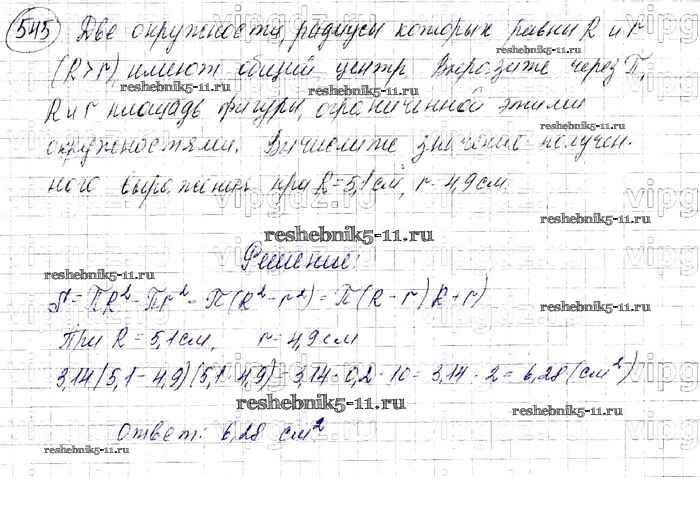 545 Две окружности, радиусы которых равны R и r
(R>r) имеют общий центр. Выразите через π,
R и r площадь фигуры, ограниченной этими
окружностями. Вычислите значение получен-
ного выражения при R=5,1 см, r=4,9 см.
Решение:
S = πR² - πr² = π(R² - r²) = π(R - r)(R + r)
При R = 5,1 см, r = 4,9 см
3,14(5,1-4,9)(5,1 4,9) = 3,14 · 0,2 · 10 = 3,14 · 2 = 6,28 (см²)
Ответ: 6,28 см²
reshebnik5-11.ru
reshebnik5-11.ru
reshebnik5-11.ru
reshebnik5-11.ru
reshebnik5-11.ru
reshebnik5-11.ru
reshebnik5-11.ru
reshebnik5-11.ru
reshebnik5-11.ru
reshebnik5-11.ru
reshebnik5-11.ru
reshebnik5-11.ru